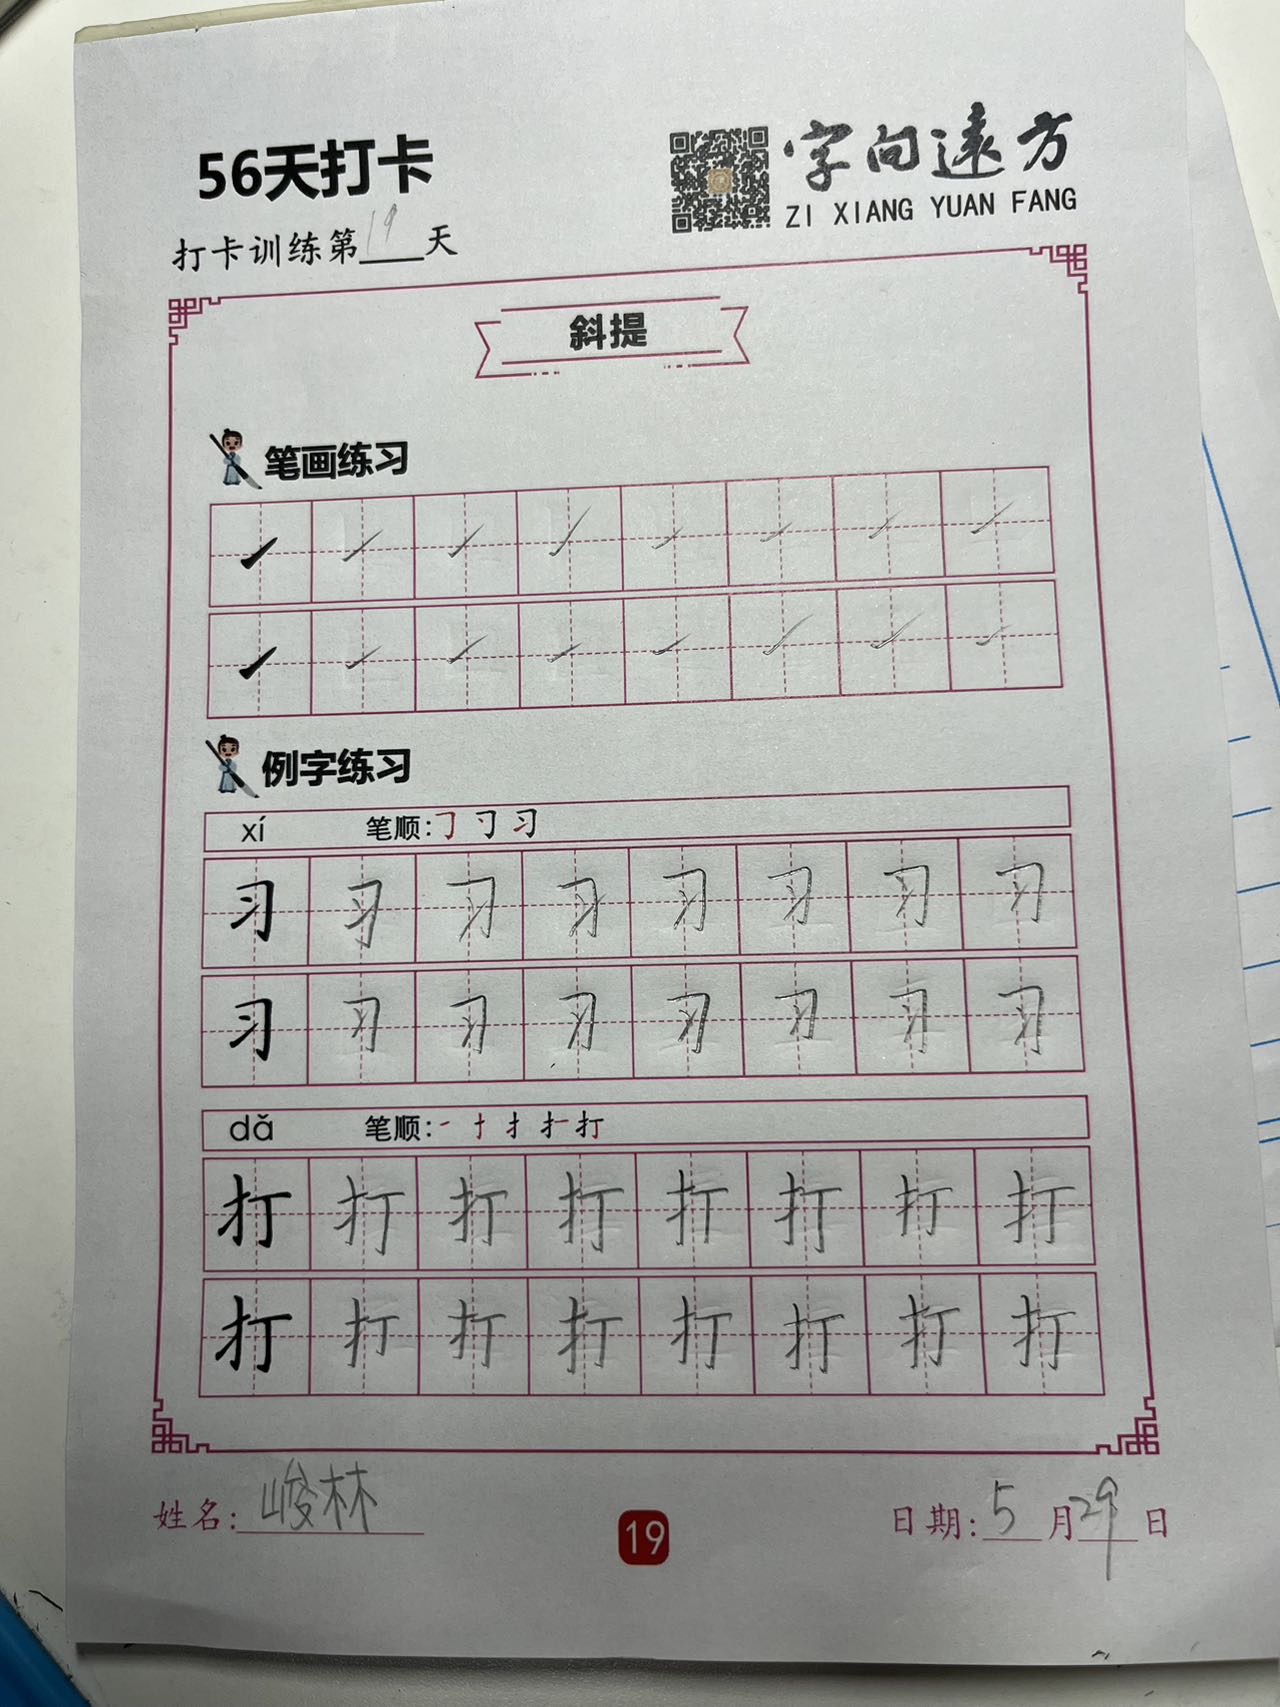 56天打卡
字向远方
ZI XIANG YUAN FANG
打卡训练第19天
斜提
笔画练习
例字练习
xí 笔顺:㇆ 刁 习
习 习 习 习 习 习 习 习
习 习 习 习 习 习 习 习
dǎ 笔顺:一 十 扌 扌一 打
打 打 打 打 打 打 打 打
打 打 打 打 打 打 打 打
姓名:峻林
19
日期:5月29日